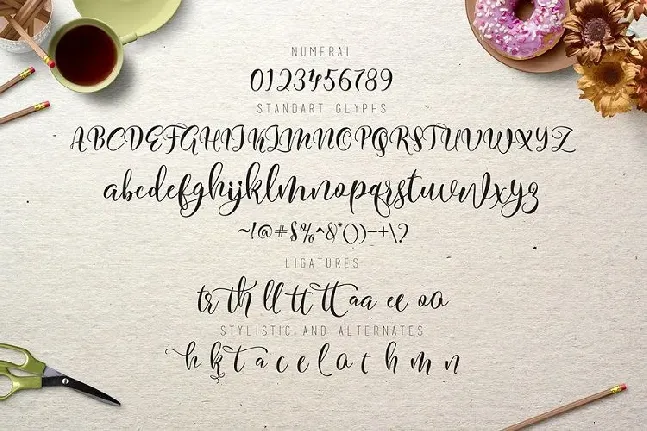 NUMERAL
0123456789
STANDART GLYPHS
ABCDEFGHIJKLMNOPQRSTUVWXYZ
abcdefghijklmnopqrstuvwxyz
~!@#$%^&*()-+\?
LIGATURES
tr th ll tt tt aa ee oo
STYLISTIC AND ALTERNATES
h k t a c e l o t h m n